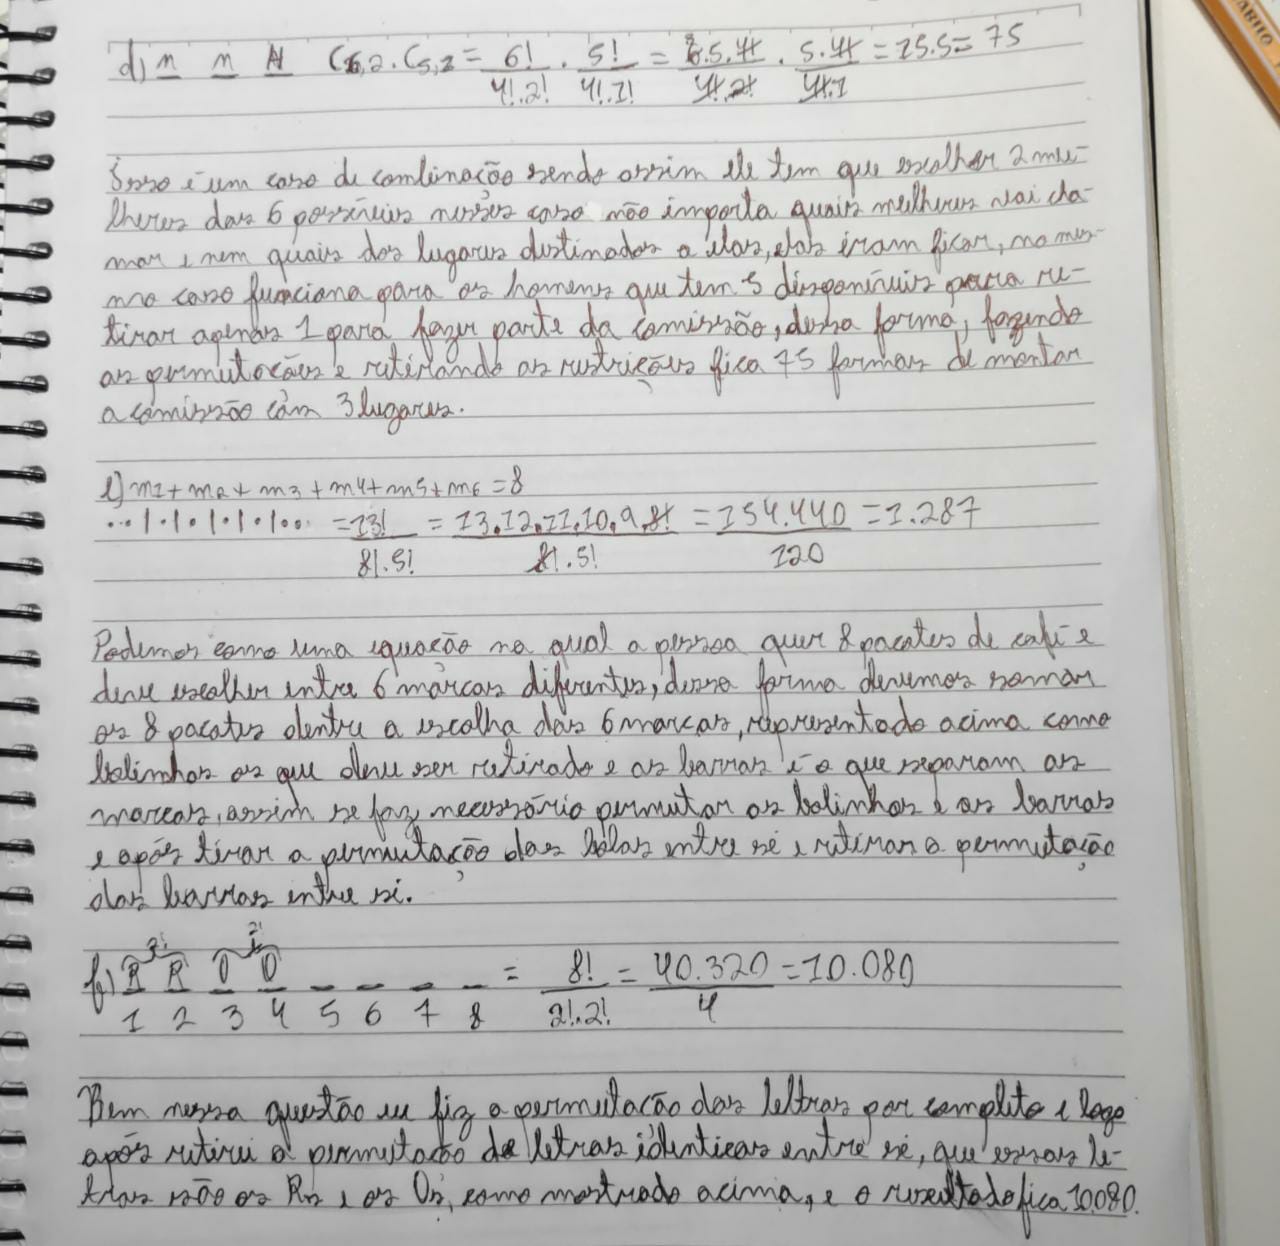 d) m m H C6,2 . C5,1 = 6!/4!.2! . 5!/4!.1! = 6.5.4!/4!.2! . 5.4!/4!.1 = 15.5 = 75
Isso é um caso de combinação sendo assim ele tem que escolher 2 mu-
lheres das 6 possíveis nesses caso não importa quais mulheres vai cha-
mar e nem quais dos lugares distinados a elas, elas iram ficar, no mes-
mo caso funciona para os homens que tem 5 disponíveis para re-
tirar apenas 1 para fazer parte da comissão, dessa forma, fazendo
as permutações e retirando as restrições fica 75 formas de montar
a comissão com 3 lugares.
e) m1 + m2 + m3 + m4 + m5 + m6 = 8
..|.|.|.|.|.. = 13!/8!.5! = 13.12.11.10.9.8!/8!.5! = 154.440/120 = 1.287
Podemos como uma equação na qual a pessoa quer 8 pacotes de café e
deve escolher entre 6 marcas diferentes, dessa forma devemos somar
os 8 pacotes dentre a escolha das 6 marcas, representado acima como
bolinhas os que deve ser retirado e as barras é o que separam as
marcas, assim se faz necessário permutar as bolinhas e as barras
e após tirar a permutação das bolas entre si e retirar a permutação
das barras entre si.
2! 2!
f) R R O O _ _ _ _ = 8!/2!.2! = 40.320/4 = 10.080
1 2 3 4 5 6 7 8
Bem nessa questão eu fiz a permutação das lettras por completo e logo
após retirei a permutação de letras identicas entre si, que essas le-
tras são os Rs e os Os, como mostrado acima, e o resultado fica 10.080.